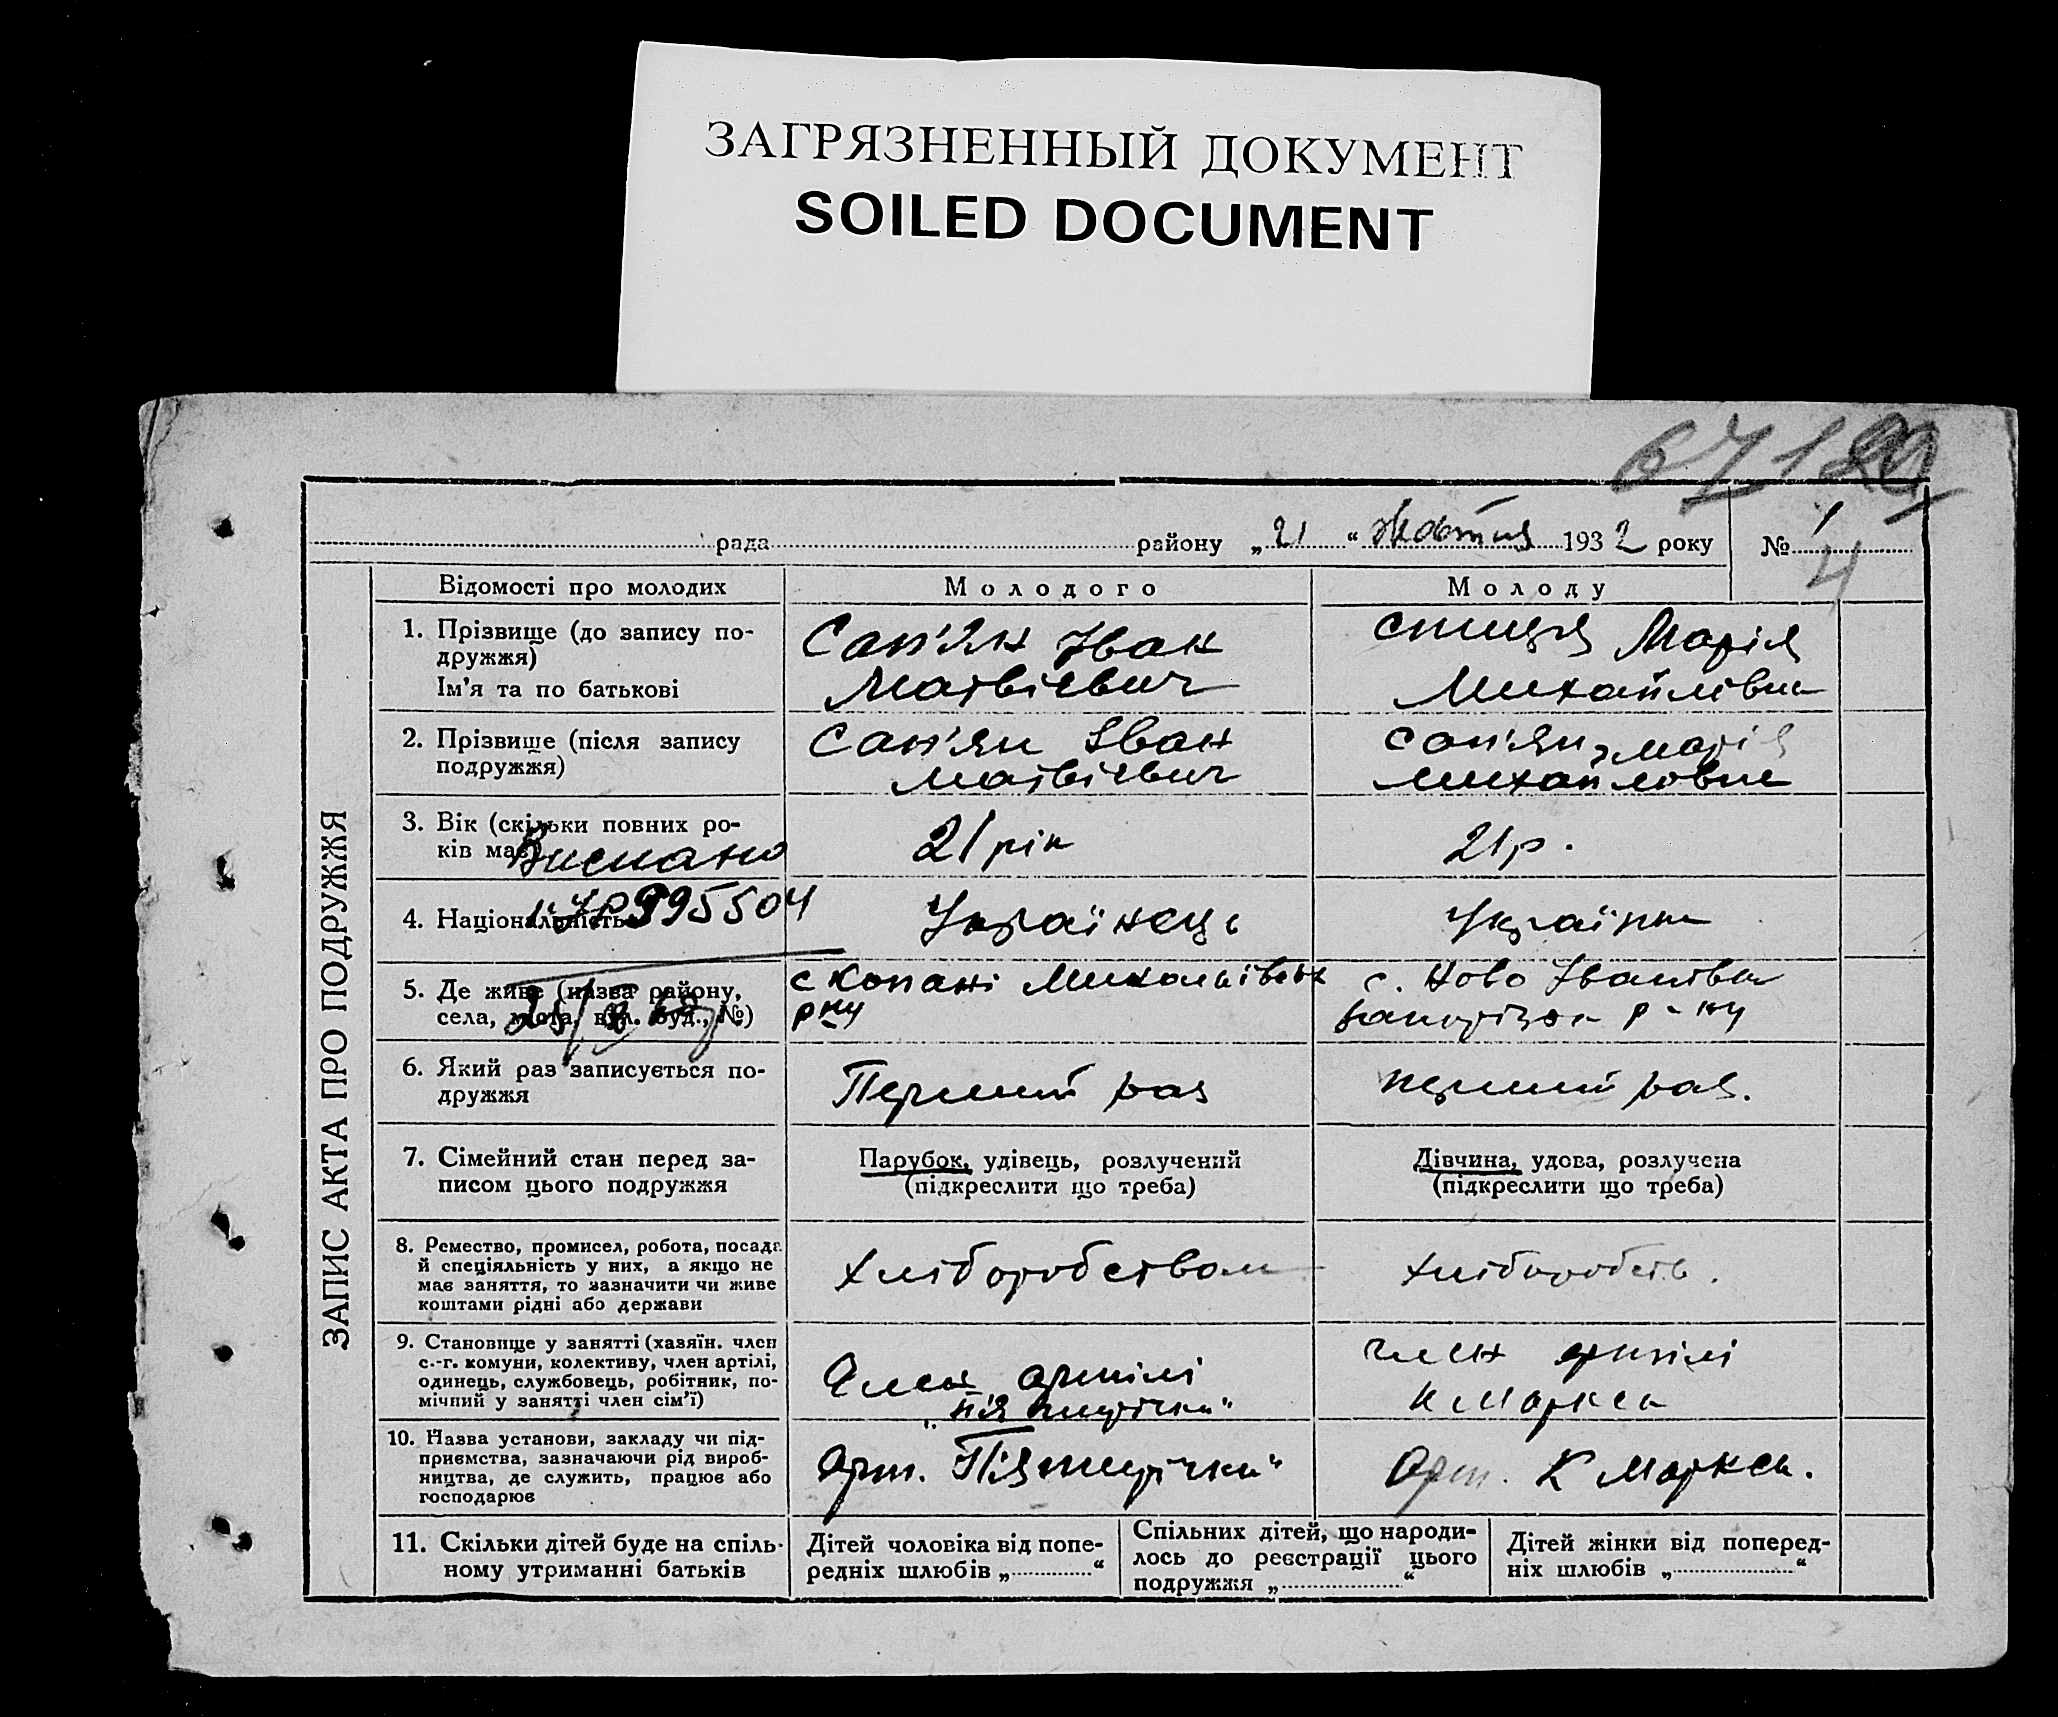 ЗАГРЯЗНЕННЫЙ ДОКУМЕНТ
SOILED DOCUMENT
67
рада района „21“ жовтня 1932 року № 1
4
ЗАПИС АКТА ПРО ПОДРУЖЖЯ
Відомості про молодих
Молодого
Молоду
1. Прізвище (до запису по-
дружжя)
Ім'я та по батькові
Сап'ян Іван
Матвієвич
Марія
Михайлівна
2. Прізвище (після запису
подружжя)
Сап'ян Іван
Матвієвич
Сап'ян Марія
Михайловна
3. Вік (скільки повних ро-
ків має)
Виписано
21 рік
21 р.
4. Національність
995504
Українець
Українка
5. Де живе (назва району,
села, міста, вул. буд., №)
с Копані Михальівськ
р ну
с. Ново Іванівка
р-ну
6. Який раз записується по-
дружжя
Перший раз
перший раз.
7. Сімейний стан перед за-
писом цього подружжя
Парубок, удівець, розлучений
(підкреслити що треба)
Дівчина, удова, розлучена
(підкреслити що треба)
8. Ремество, промисел, робота, посада
й спеціяльність у них, а якщо не
має заняття, то зазначити чи живе
коштами рідні або держави
Хліборобством
хлібороб́ств.
9. Становище у занятті (хазяїн. член
с.-г. комуни, колективу, член артілі,
одинець, службовець, робітник, по-
мічний у занятті член сім'ї)
Член артілі
„П'ятирічка“
член артілі
К Маркса
10. Назва установи, закладу чи під-
приємства, зазначаючи рід вироб-
ництва, де служить, працює або
господарює
Арт. „П'ятирічка“
Арт. К Маркса.
11. Скільки дітей буде на спіль-
ному утриманні батьків
Дітей чоловіка від попе-
редніх шлюбів „ “
Спільних дітей, що народи-
лось до реєстрації цього
подружжя „ “
Дітей жінки від поперед-
ніх шлюбів „ “